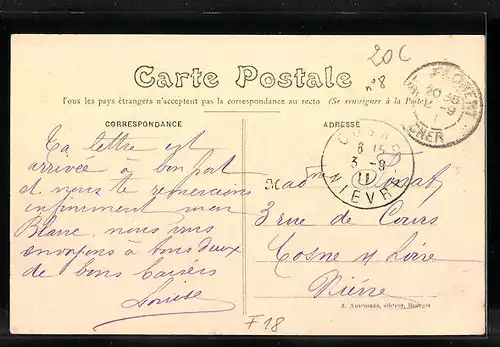 20c
n°8
Carte Postale
Tous les pays étrangers n'acceptent pas la correspondance au recto (Se renseigner à la Poste)
CORRESPONDANCE
ADRESSE
Ta lettre est
arrivée à bon port
et nous te remercions
infiniment mon
nous vous
envoyons à tous deux
de bons baisers
Louise
COSNE
6 15
3 -9
11
NIEVRE
CHER
Madme
3 rue de Cours
Cosne s/ Loire
Nièvre
A. Auxenans, éditeur, Bourges
F18